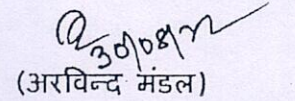 30/08/12
(अरविन्द मंडल)